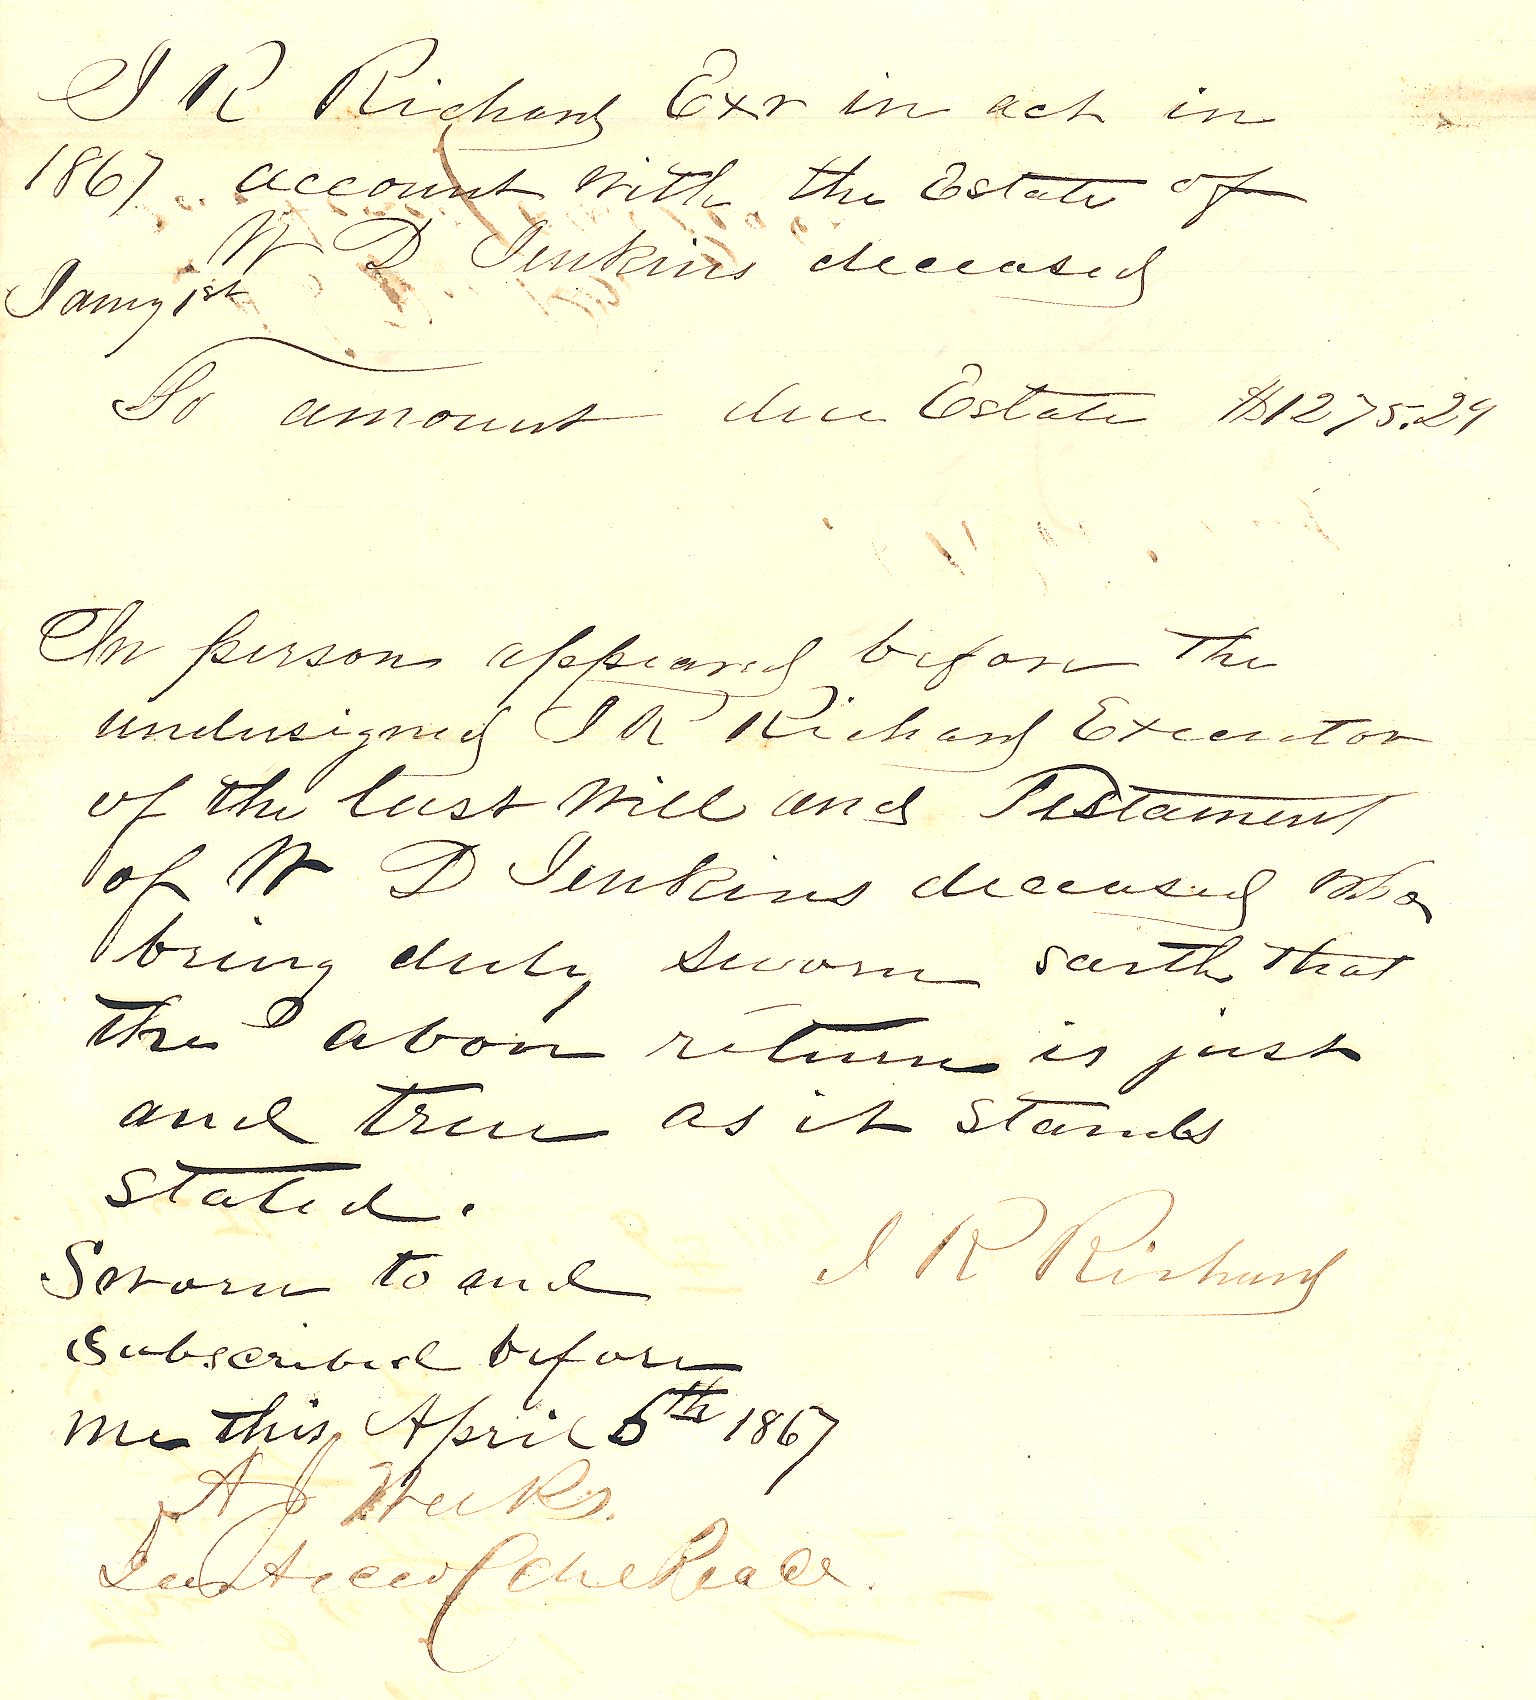 J R Richard Exr in act in
1867 account with the Estate of
W D Jenkins deceased
Jany 1st
To amount due Estate $1275.29
In person appeared before the
undersigned J R Richard Executor
of the last Will and Testament
of W D Jenkins deceased who
being duly sworn saith that
the above return is just
and true as it stands
stated.
J R Richard
Sworn to and
Subscribed before
me this April 6th 1867
A J Weeks.